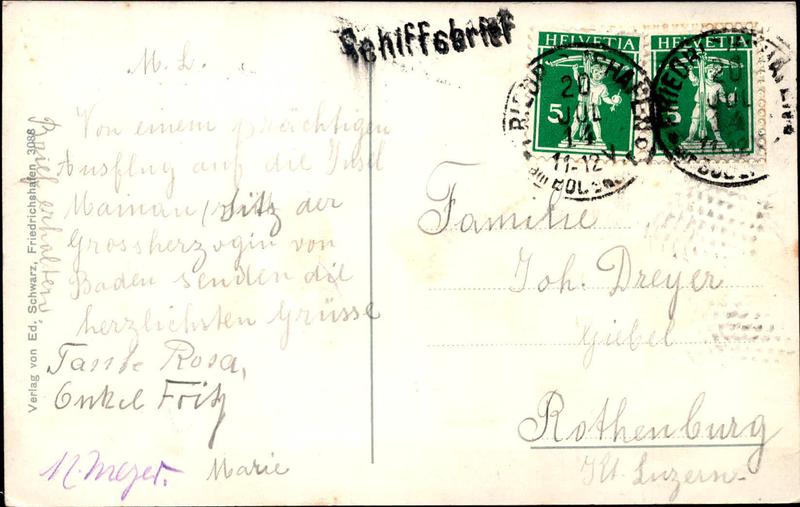 Schiffsbrief
HELVETIA
HELVETIA
5
5
FRIEDRICHSHAFEN
20
JUL
14
11-12
am BODENS
M. L.
Von einem prächtigen
Ausflug auf die Insel
Mainau, Sitz der
Grossherzogin von
Baden senden die
herzlichsten Grüsse
Tante Rosa,
Onkel Fritz
M. Meyer.
Marie
Brief erhalten.
Verlag von Ed. Schwarz, Friedrichshafen 3088
Familie
Joh. Dreyer
Giebel
Rothenburg
Kt. Luzern